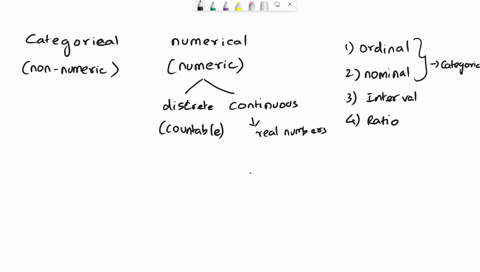 Categorical
(non-numeric)
numerical
(numeric)
discrete continuous
(Countable)
real numbers
1) Ordinal
2) nominal
→ Categoric
3) Interval
4) Ratio